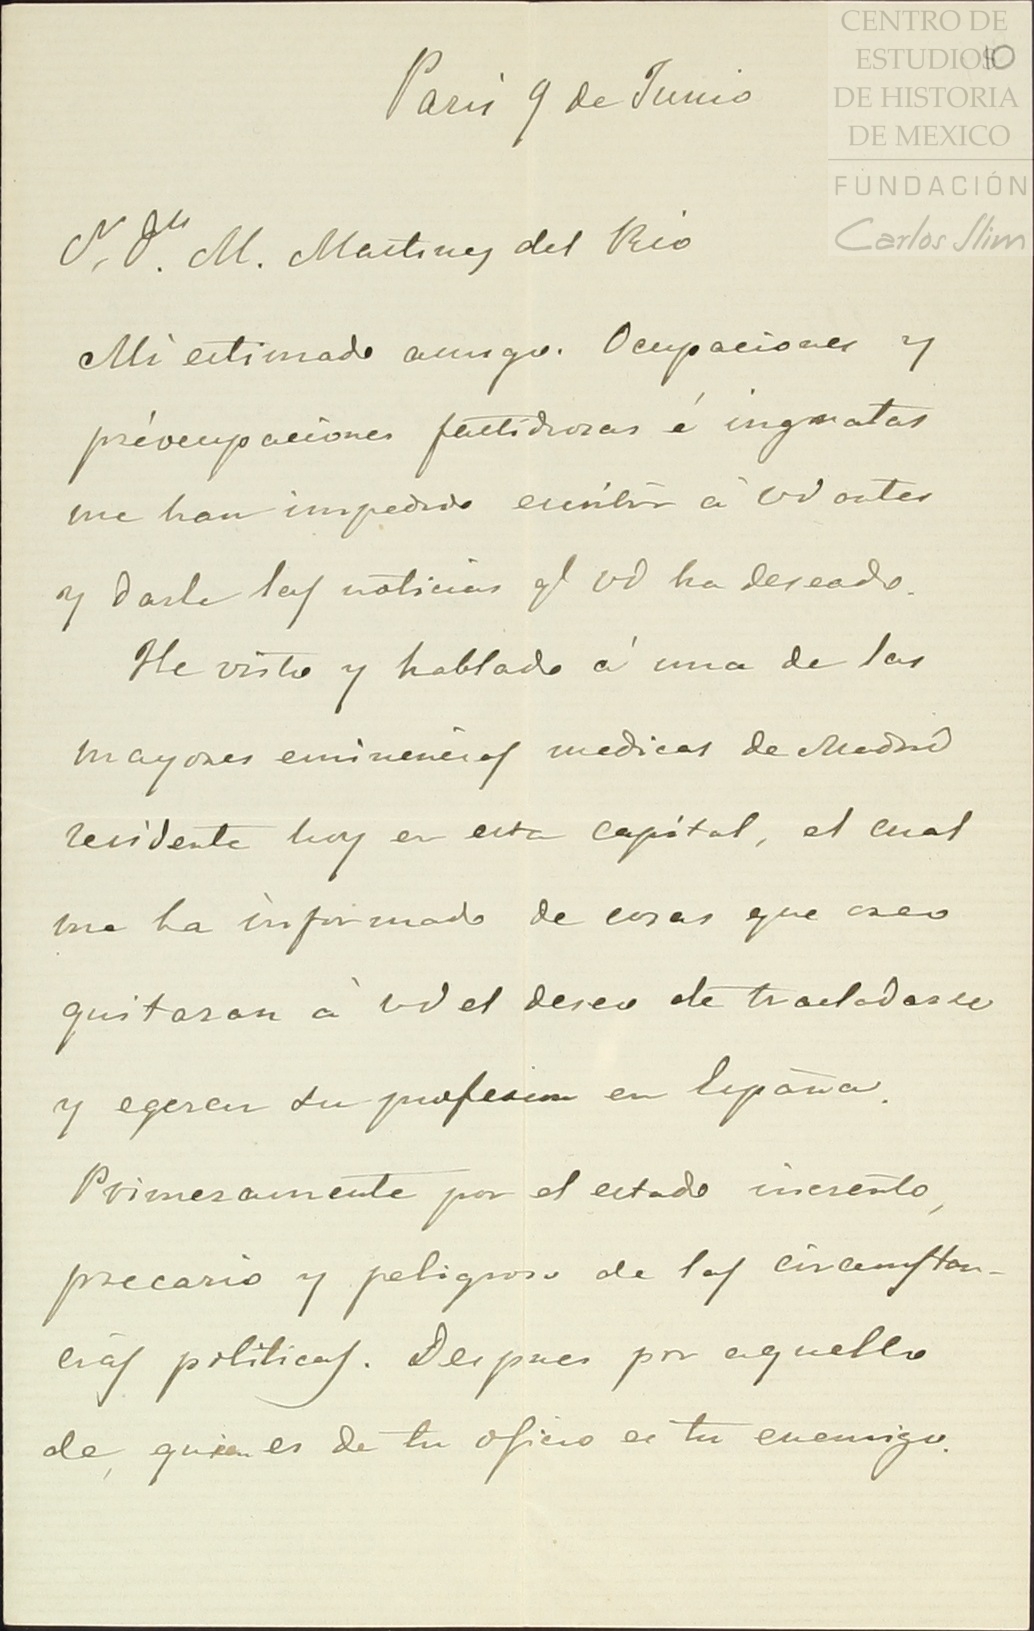 CENTRO DE
ESTUDIOS
DE HISTORIA
DE MEXICO
FUNDACIÓN
Carlos Slim
Paris 9 de Junio
M. Martinez del Rio
Mi estimado amigo. Ocupaciones y
préocupaciones fastidiosas é ingratas
me han impedido escribir á Vd antes
y darle las noticias qe Vd ha deseado.
He visto y hablado á una de las
mayores eminencias medicas de Madrid
residente hoy en esta capital, el cual
me ha informado de cosas que creo
quitaran à Vd el deseo de trasladarse
y egercer su profesion en España.
Primeramente por el estado incierto,
precario y peligroso de las circunstan-
cias politicas. Despues por aquello
de, quien es de tu oficio es tu enemigo.